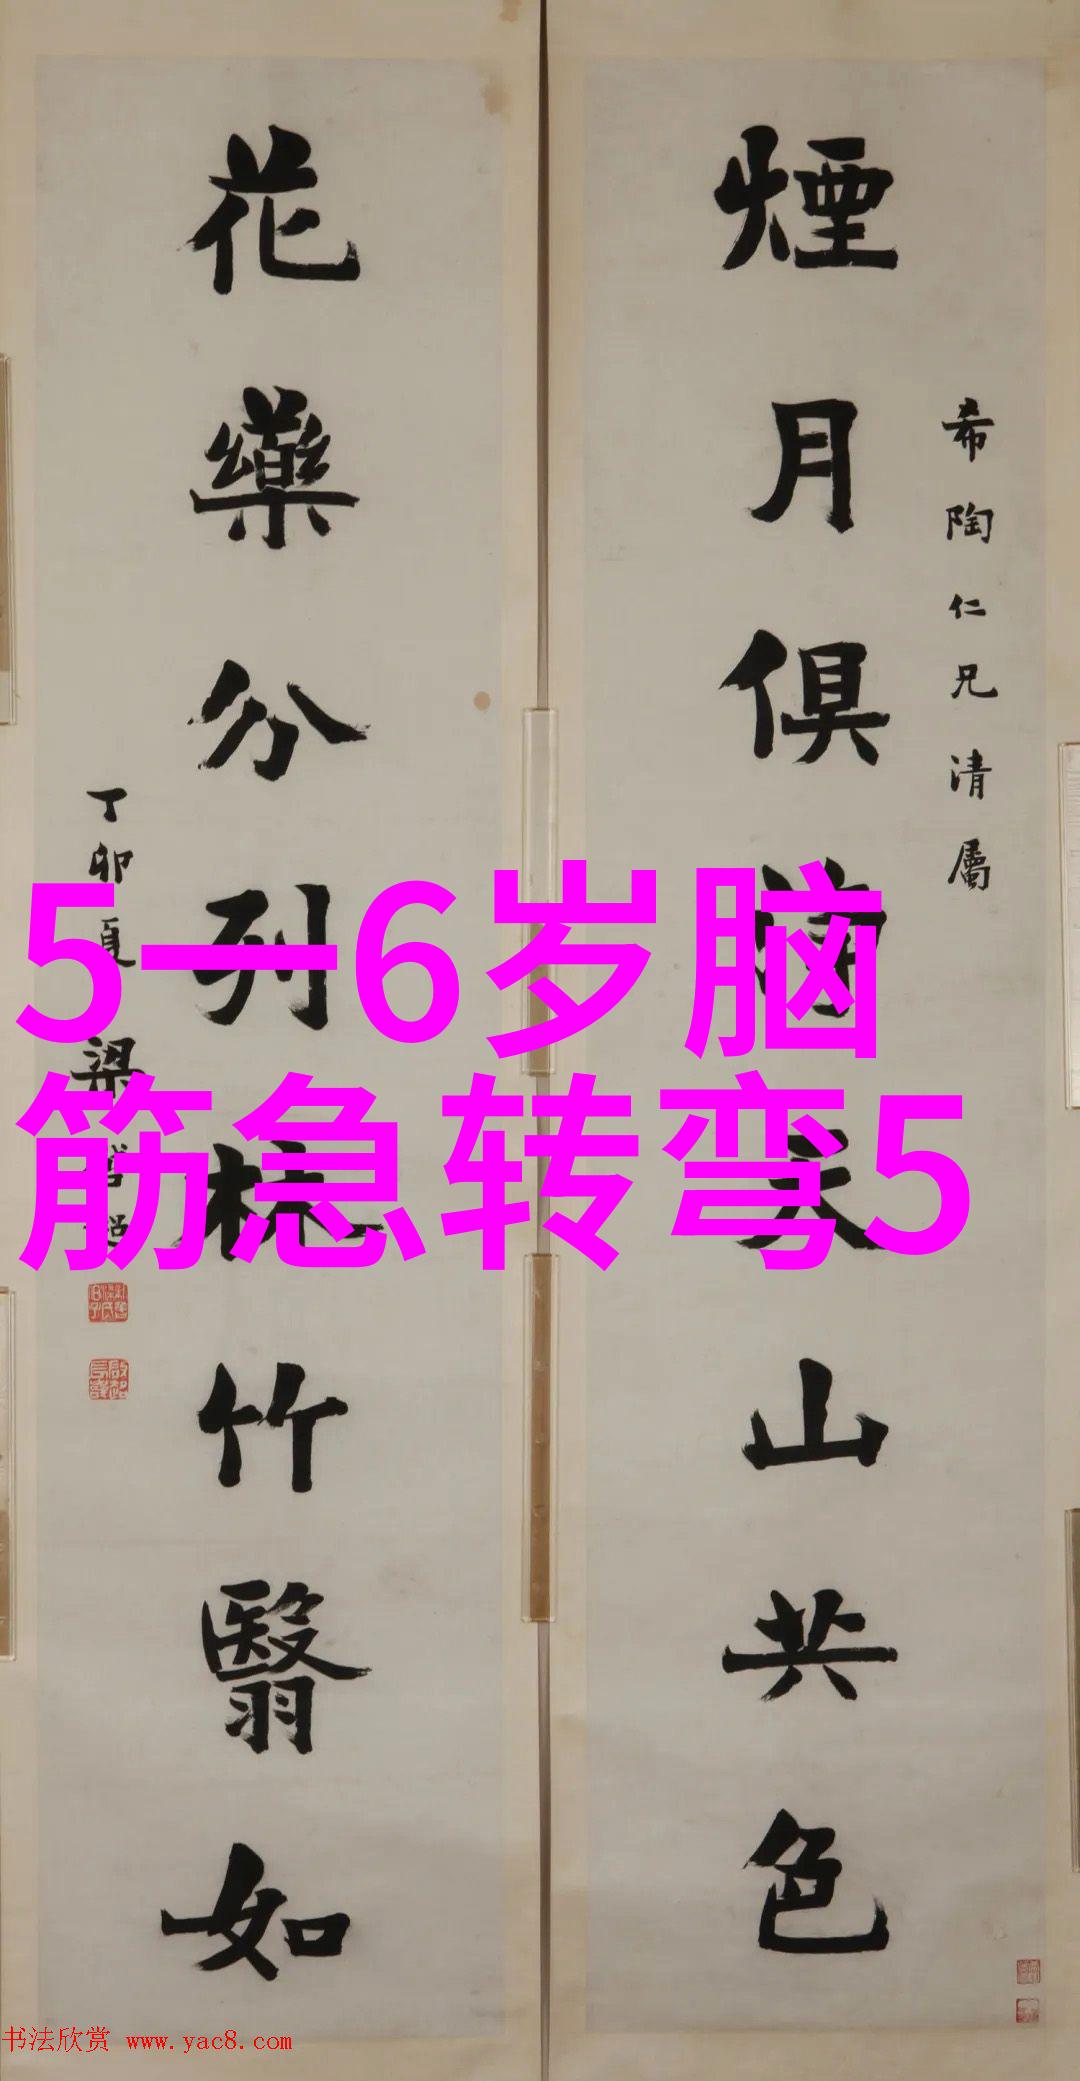 煙月俱
山共色
希陶仁兄清屬
花藥分列林竹翳如
丁卯夏梁
5一6岁脑
筋急转弯5
书法欣赏 www.yac8.com